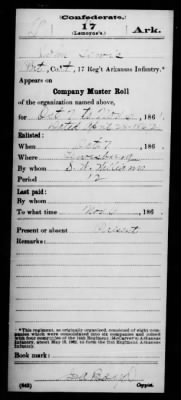 Confederate.
17
(Lemoyne's.)
Ark.
Pvt, Co. , 17 Reg't Arkansas Infantry.*
Appears on
Company Muster Roll
of the organization named above,
for Oct 7 to Nov , 186 .
Enlisted:
When Oct 7 , 186 .
Where
By whom S. W. Williams
Period 12
Last paid:
By whom
To what time Nov , 186 .
Present or absent Present
Remarks:
*This regiment, as originally organized, consisted of eight companies which were consolidated into six companies and joined with four companies of the 14th Regiment (McCarver's) Arkansas Infantry, about May 15, 1862, to form the 21st Regiment Arkansas Infantry.
Book mark:
(642)
Copyist.